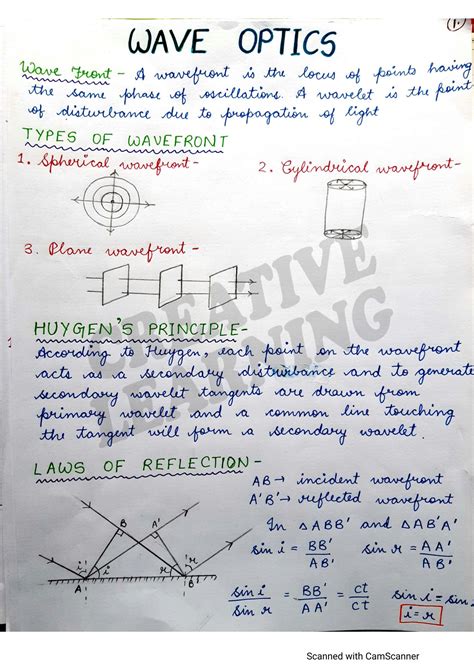 (1.)
WAVE OPTICS
Wave Front - A wavefront is the locus of points having
the same phase of oscillations. A wavelet is the point
of disturbance due to propagation of light
TYPES OF WAVEFRONT
1. Spherical wavefront -
2. Cylindrical wavefront -
3. Plane wavefront -
CREATIVE
LEARNING
HUYGEN'S PRINCIPLE -
According to Huygen, each point on the wavefront
acts as a secondary disturbance and to generate
secondary wavelet tangents are drawn from
primary wavelet and a common line touching
the tangent will form a secondary wavelet.
LAWS OF REFLECTION -
AB → incident wavefront
A'B' → reflected wavefront
In △ABB' and △AB'A'
sin i = BB'/AB' sin r = AA'/AB'
sin i/sin r = BB'/AA' = ct/ct sin i = sin
i = r
B A'
i i r r
A B'
Scanned with CamScanner